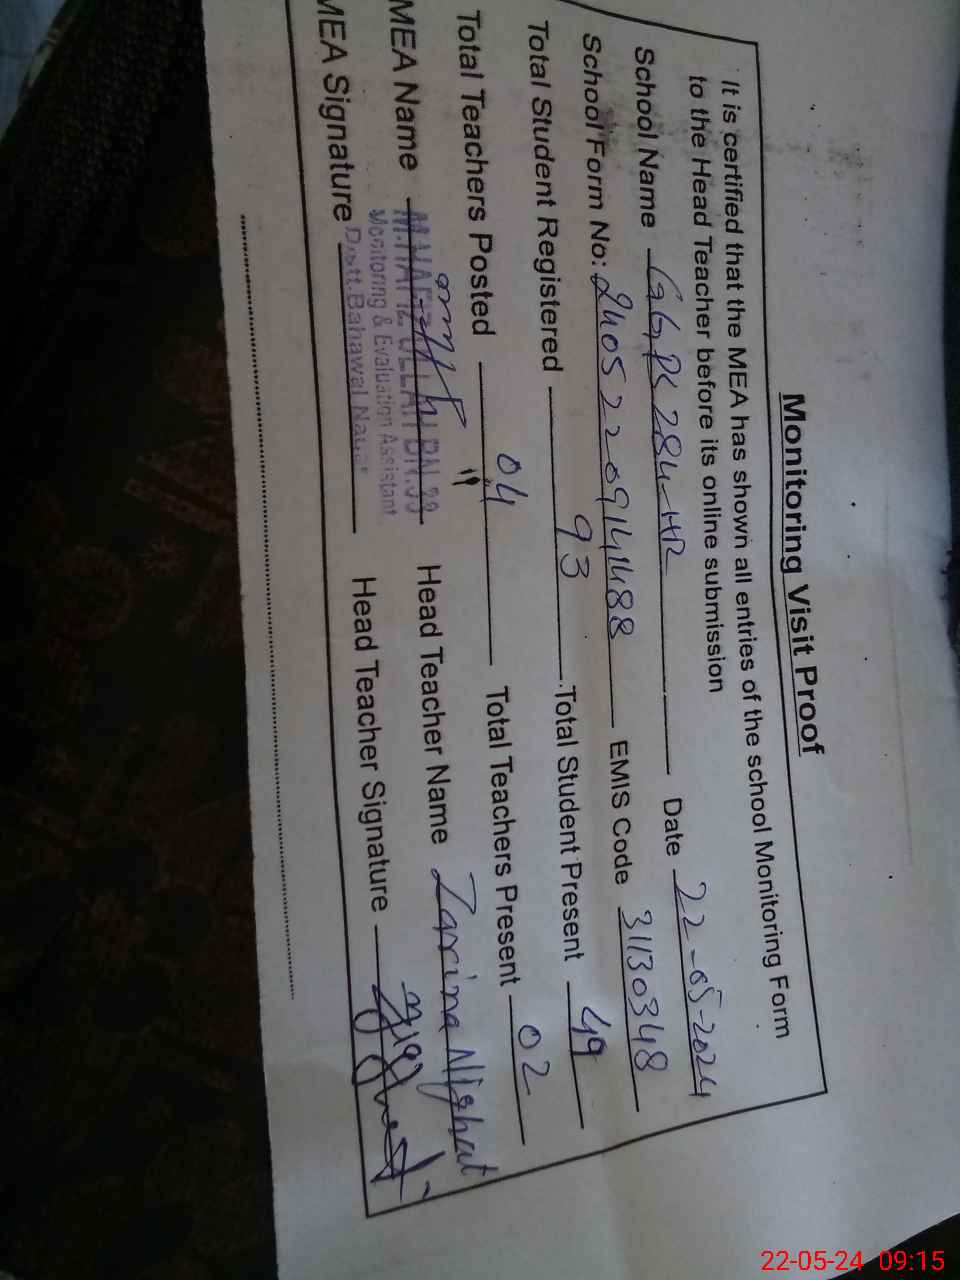 Monitoring Visit Proof
It is certified that the MEA has shown all entries of the school Monitoring Form
to the Head Teacher before its online submission
School Name GGPS 284-HR Date 22-05-2024
School Form No: 24052209141488 EMIS Code 31130348
Total Student Registered 93 Total Student Present 49
Total Teachers Posted 04 Total Teachers Present 02
MEA Name M.HAFEEZ ULLAH BN.33 Head Teacher Name Zarina Nighat
Monitoring & Evaluation Assistant
MEA Signature Distt. Bahawal Nagar Head Teacher Signature
22-05-24 09:15